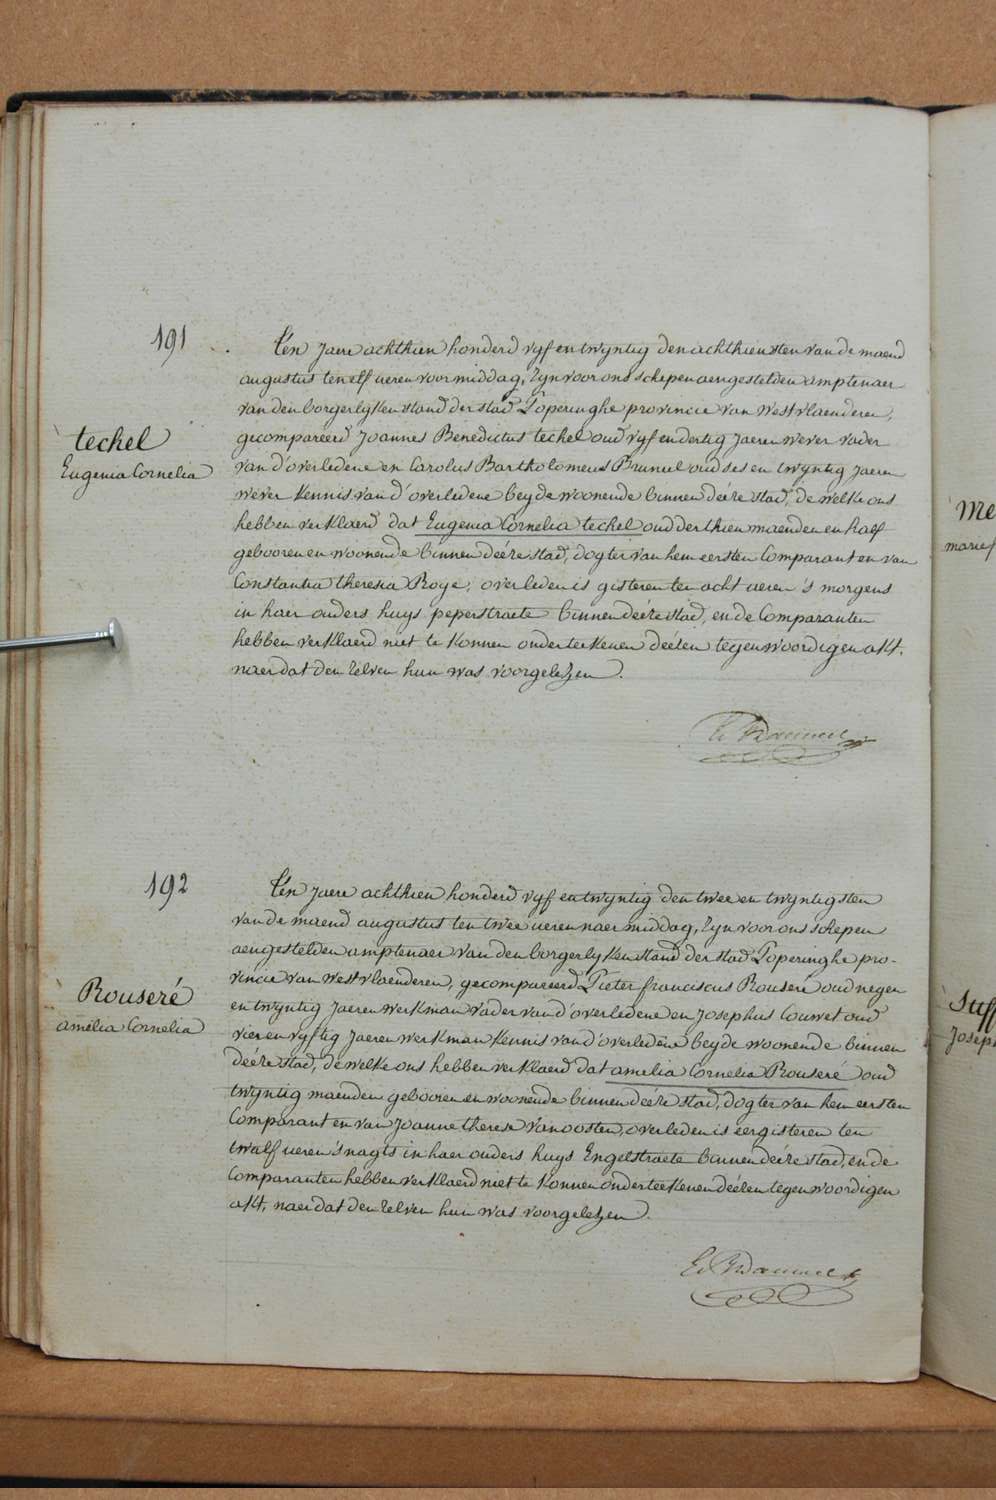 191
teckel
Eugenia Cornelia
t'én Jaere achthien honderd vyf en twyntig den achthiensten van de maend
augustus ten elf ueren voormiddag, zyn voor ons schepen aengestelden amptenaer
van den borgerlyken stand der stad Poperinghe provincie van Westvlaenderen,
gecompareerd Joannes Benedictus teckel oud vyf en dertig Jaeren wever vader
van d'overledene en Carolus Bartholomeus Bruneel oud ses en twyntig Jaeren
wever kennis van d'overledene beyde woonende binnen deéze stad, de welke ons
hebben verklaerd dat Eugenia Cornelia teckel oud derthien maenden en half
gebooren en woonende binnen deéze stad, dogter van hem eersten Comparant en van
Constantia theresia Roye, overleden is gisteren ten acht ueren 's morgens
in haer ouders huys peperstraete binnen deéze stad, en de Comparanten
hebben verklaerd niet te konnen onderteekenen deézen tegenwoordigen akt,
naer dat den zelven hun was voorgelezen.
192
Rouseré
amelia Cornelia
t'én Jaere achthien honderd vyf en twyntig den twee en twyntigsten
van de maend augustus ten twee ueren naermiddag, zyn voor ons schepen
aengestelden amptenaer van den borgerlyken stand der stad Poperinghe pro-
vincie van Westvlaenderen, gecompareerd Pieter franciscus Rouseré oud negen
en twyntig Jaeren werkman vader van d'overledene en Josephus Couwet oud
vier en vyftig Jaeren werkman kennis van d'overledene beyde woonende binnen
deéze stad, de welke ons hebben verklaerd dat amelia Cornelia Rouseré oud
twyntig maenden gebooren en woonende binnen deéze stad, dogter van hem eersten
Comparant en van Joanne therese Vanoosten, overleden is eergisteren ten
twalf ueren 's nagts in haer ouders huys Engelstraete binnen deéze stad, en de
Comparanten hebben verklaerd niet te konnen onderteekenen deézen tegenwoordigen
akt, naer dat den zelven hun was voorgelezen.
Me
marie
Suff
Joseph